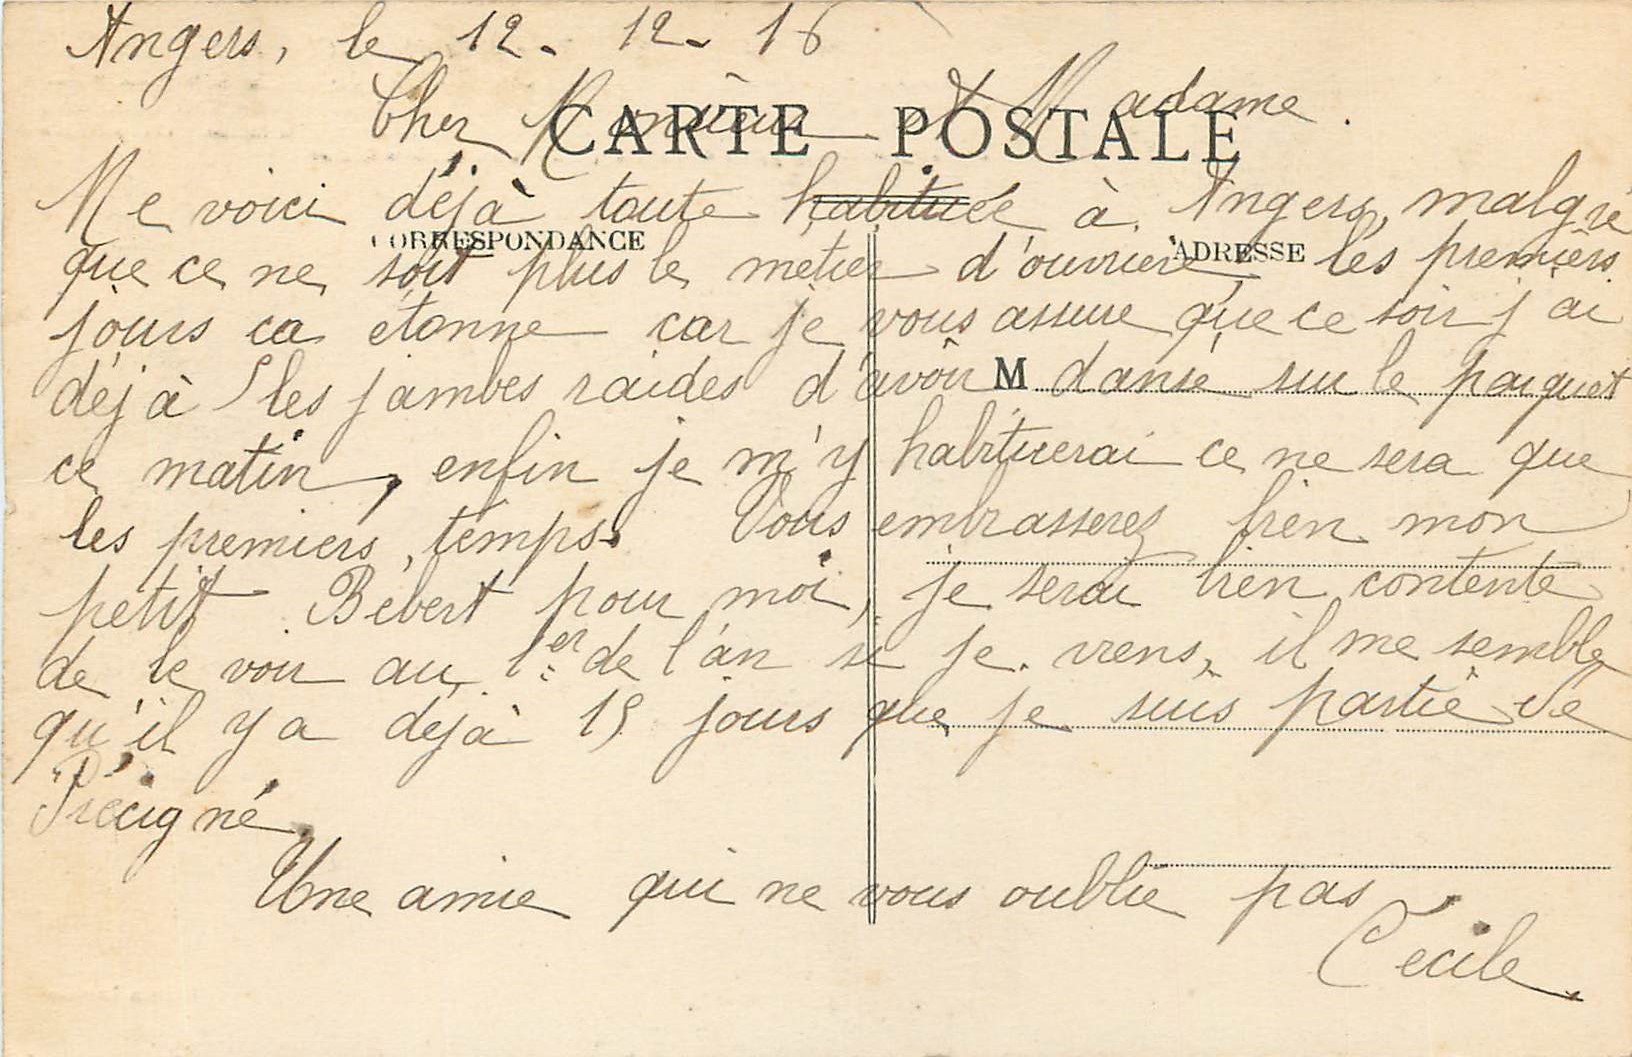 Angers, le 12. 12. 16
Cher Monsieur & Madame.
CARTE POSTALE
Me voici déjà toute habituée à Angers, malgré
CORRESPONDANCE ADRESSE
que ce ne soit plus le métier d'ouvrière, les premiers
jours ca étonne car je vous assure que ce soir j'ai
déjà les jambes raides d'avoir dansé sur le parquet
M
ce matin, enfin je m'y habituerai ce ne sera que
les premiers temps. Vous embrasserez bien mon
petit Bébert pour moi, je serai bien contente
de le voir au 1er de l'an si je viens, il me semble
qu'il y a déjà 15 jours que je suis partie de
Précigné.
Une amie qui ne vous oublie pas.
Cécile.